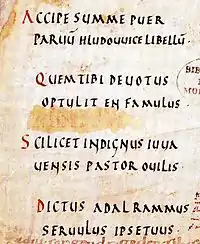 ACCIPE SUMME PUER
PARUU̅ HLUDOUUICE LIBELLU̅·
QUEM TIBI DEVOTUS
OPTULIT EN FAMULUS
SCILICET INDIGNUS IUUA
UENSIS PASTOR OUILIS·
DICTUS ADALRAMMUS
SERUULUS IPSE TUUS·
BIB